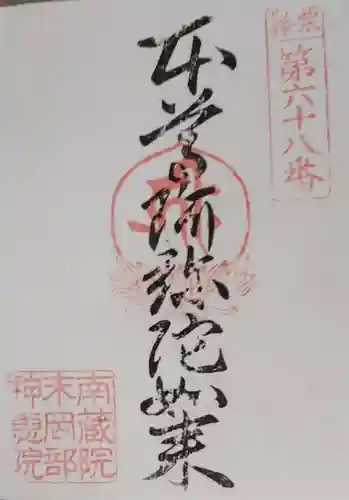 第六十八番
本尊阿弥陀如来
南蔵院
末岡部
神恩院